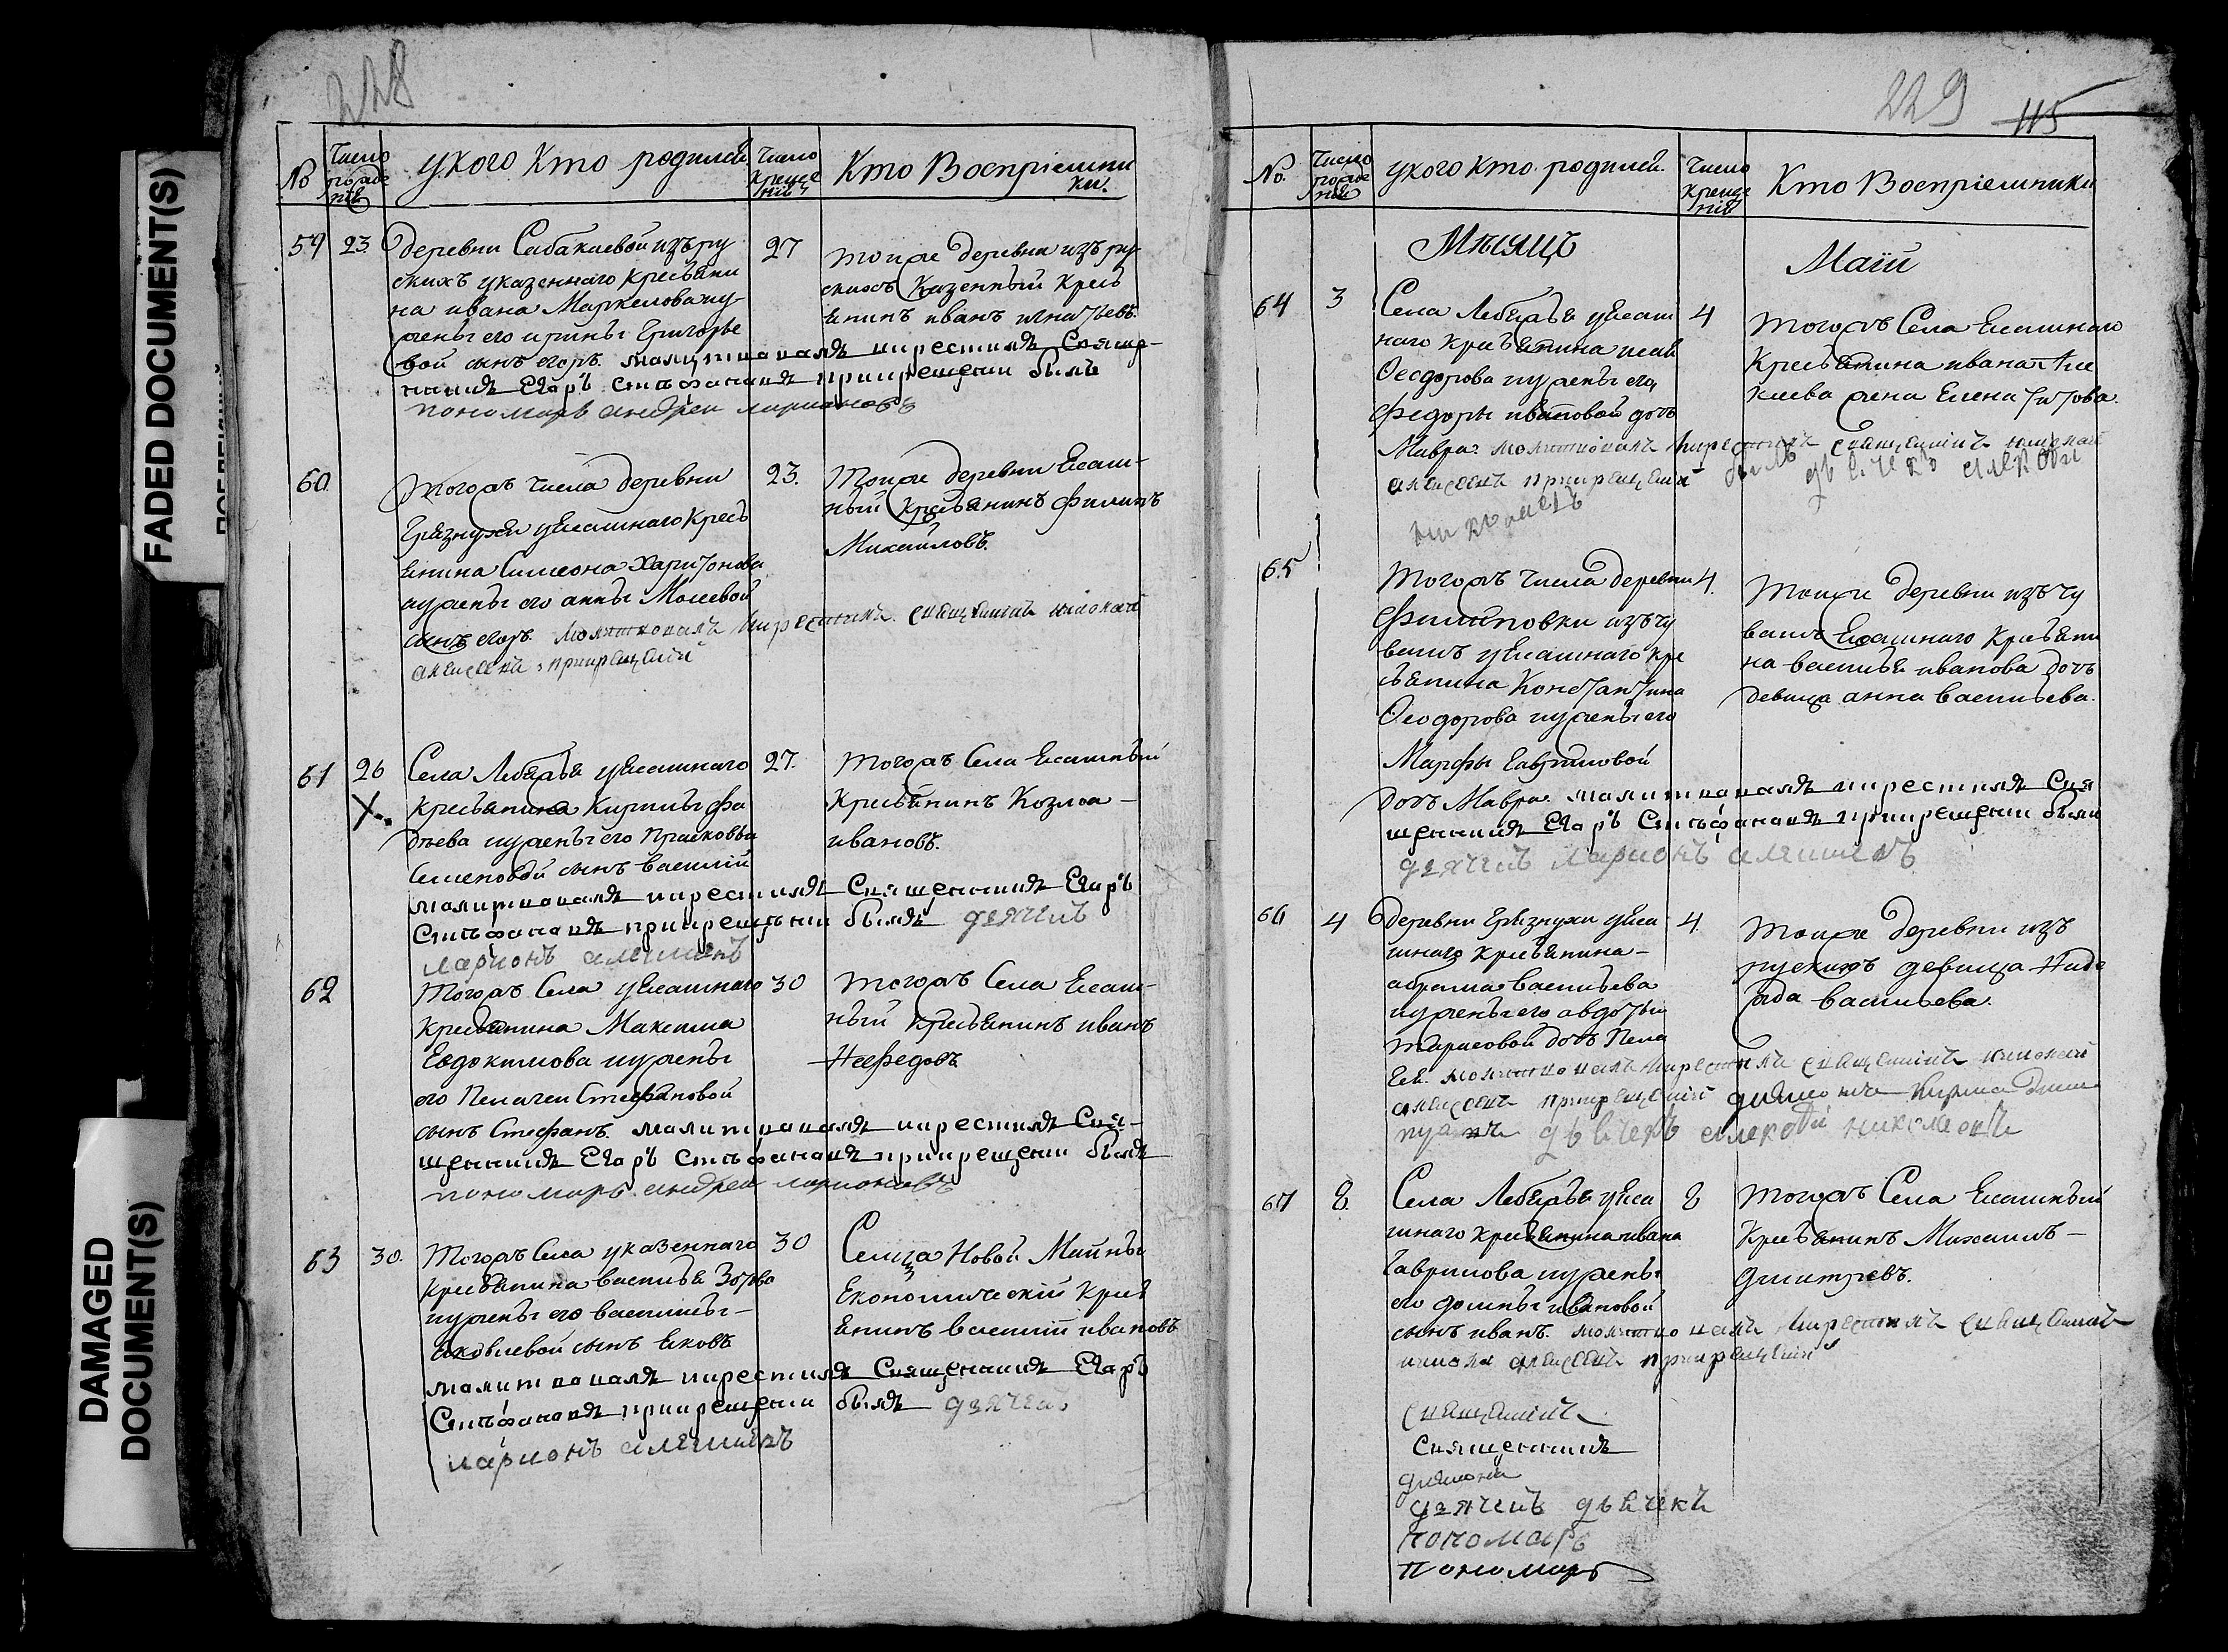 FADED DOCUMENT(S)
DAMAGED
DOCUMENT(S)
228
№
Число рожденія
у кого кто родился
Число крещеній
Кто Воспріемники.
59
23
деревни Сабакаевой изъ ру
скихъ указеннаго крестьяни
на ивана Маркелова иу
жены его ирины Григорье
вой сынъ егоръ. молитвовалъ икрестилъ Свяще-
нникъ Егоръ Стефановъ прикрещении былъ
пономарь андреи ларионовъ
27
тойже деревни изъ ру
скихъ Казенный Крестъ
янинъ иванъ игнатьевъ.
60
тогожъ числа деревни
Грязнухи уясашнаго Кресть
янина Симеона Харитонова
иужены его анны Мосевой
сынъ егоръ. молитвовалъ икрестилъ священникъ николай
алексеевъ прикрещеніи
23.
тойже деревни Ясаш-
ный Крестьянинъ Филипъ
Михайловъ.
61
26
Села Лебяжья уясашнаго
крестьянина Кирилы Фа
дѣева иужены его Прасковьи
Семеновой сынъ василій
молитвовалъ икрестилъ Священникъ Егоръ
Стефановъ прикрещении былъ дьячекъ
ларионъ
27.
тогожъ Села Ясашный
Крестьянинъ Козма
ивановъ.
62
тогожъ Села уясашнаго
крестьянина Максима
Евдокимова иужены
его Пелагеи Стефановой
сынъ Стефанъ. молитвовалъ икрестилъ Свя-
щенникъ Егоръ Стефановъ прикрещении былъ
пономарь андреи ларионовъ
30
тогожъ Села Ясаш-
ный крестьянинъ иванъ
Нефедовъ
63
30.
Тогожъ Села указеннаго
крестьянина василья Зотова
иужены его василисы
яковлевой сынъ яковъ
молитвовалъ икрестилъ Священникъ Егоръ
Стефановъ прикрещении былъ дьячекъ
ларионъ
30
Селца Новой Майны
Економическій Крест
янинъ василій ивановъ
229
115
№.
Число рожденія
у кого кто родился.
Число крещенія
Кто Воспріемники
Мѣсяцъ
Маій
64
3
Села Лебяжья уясаш
наго крестьянина исая
Ѳеодорова иужены его
федоры ивановой дочь
Мавра. молитвовалъ икрестилъ священникъ николай
алексеевъ прикрещеніи былъ дьячекъ алексѣй
николаевъ
4
тогожъ Села Ясашнаго
Крестьянина ивана Але
ксеева жена Елена Титова.
65
тогожъ числа деревни
Филиповки изъ чу
вашъ уясашнаго кре
стьянина Константина
Ѳеодорова иужены его
Марфы Гавриловой
дочь Мавра. молитвовалъ икрестилъ Свя
щенникъ Егоръ Стефановъ прикрещении были
дьячекъ ларионъ
4.
тойже деревни изъ чу
вашъ Ясашнаго крестьяни
на василья иванова дочь
девица анна васильева.
66
4
деревни Грязнухи уяса
шнаго крестьянина
абрама васильева
иужены его авдотьи
тарасовой дочь Пела
гея. молитвовалъ икрестилъ священникъ николай
алексеевъ прикрещеніи дьяконъ
дьячекъ алексѣй николаевъ
4.
тойже деревни изъ
рускихъ девица Наде
жда васильева.
67
8.
Села Лебяжья уяса
шнаго крестьянина ивана
Гаврилова иужены
его домны ивановой
сынъ иванъ. молитвовалъ икрестилъ священникъ
николай алексеевъ прикрещеніи
8
тогожъ Села Ясашный
Крестьянинъ Михаилъ
Дмитревъ.
священникъ
Священникъ
дьяконъ
дьячекъ дьячекъ
пономарь
пономарь